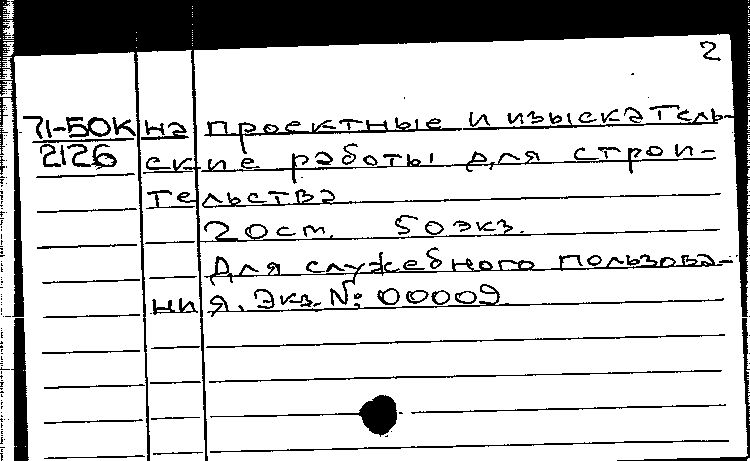 2
71-50К на проектные и изыскатель-
2126 ские работы для строи-
тельства
20см. 50экз.
Для служебного пользова-
ния. Экз. №: 00009